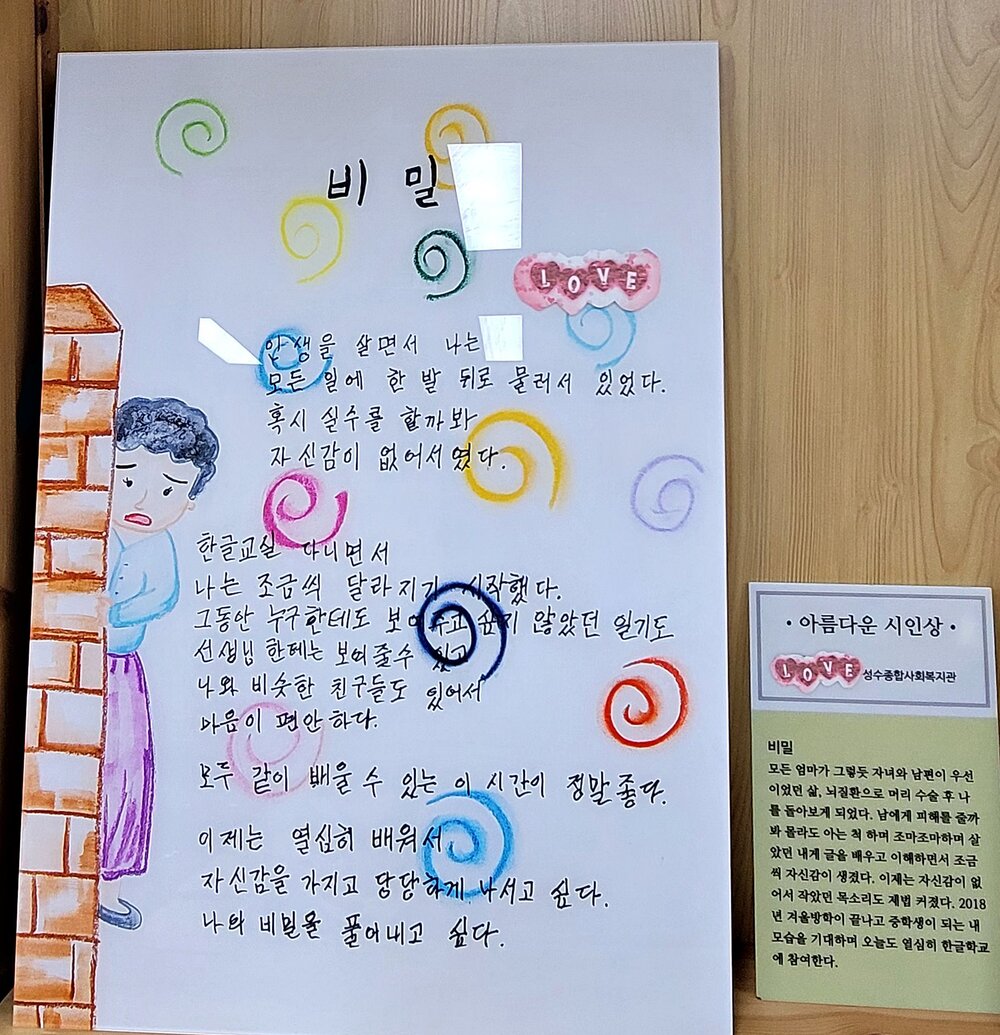 비 밀
LOVE
인생을 살면서 나는
모든 일에 한 발 뒤로 물러서 있었다.
혹시 실수를 할까봐
자신감이 없어서였다.
한글교실 다니면서
나는 조금씩 달라지기 시작했다.
그동안 누구한테도 보여주고 싶지 않았던 일기도
선생님 한테는 보여줄수 있고
나와 비슷한 친구들도 있어서
마음이 편안하다.
모두 같이 배울 수 있는 이 시간이 정말좋다.
이제는 열심히 배워서
자신감을 가지고 당당하게 나서고 싶다.
나의 비밀을 풀어내고 싶다.
·아름다운 시인상·
LOVE 성수종합사회복지관
비밀
모든 엄마가 그렇듯 자녀와 남편이 우선
이었던 삶, 뇌질환으로 머리 수술 후 나
를 돌아보게 되었다. 남에게 피해를 줄까
봐 몰라도 아는 척 하며 조마조마하며 살
았던 내게 글을 배우고 이해하면서 조금
씩 자신감이 생겼다. 이제는 자신감이 없
어서 작았던 목소리도 제법 커졌다. 2018
년 겨울방학이 끝나고 중학생이 되는 내
모습을 기대하며 오늘도 열심히 한글학교
에 참여한다.